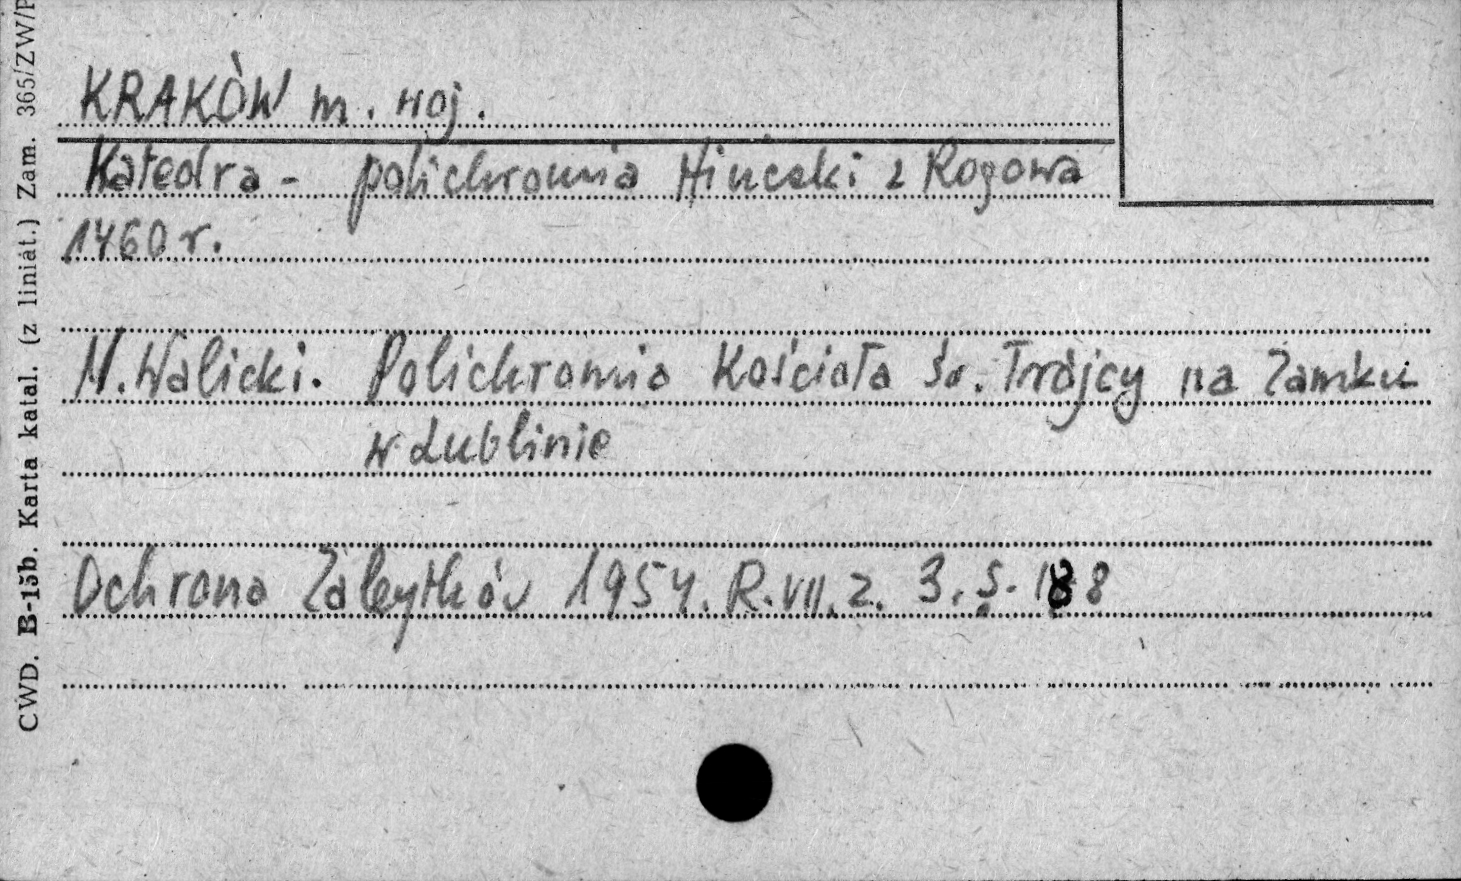 KRAKÓW m. woj.
Katedra - polichromia Hińczki z Rogowa
1460 r.
M. Walicki. Polichromia Kościoła św. Trójcy na Zamku
w Lublinie
Ochrona Zabytków 1954. R. VII. z. 3. s. 188
CWD. B-15b. Karta katal. (z liniat.) Zam. 365/ZW/P